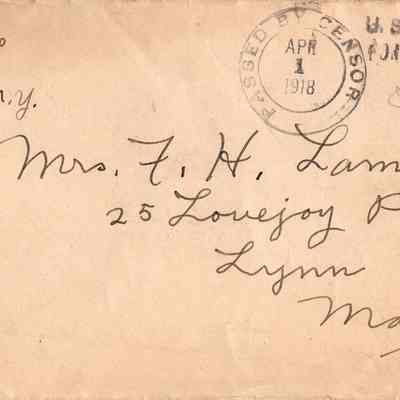 PASSED BY CENSOR
APR
1
1918
U.S.
n.y.
Mrs. F. H. Lam
25 Lovejoy P
Lynn
Ma